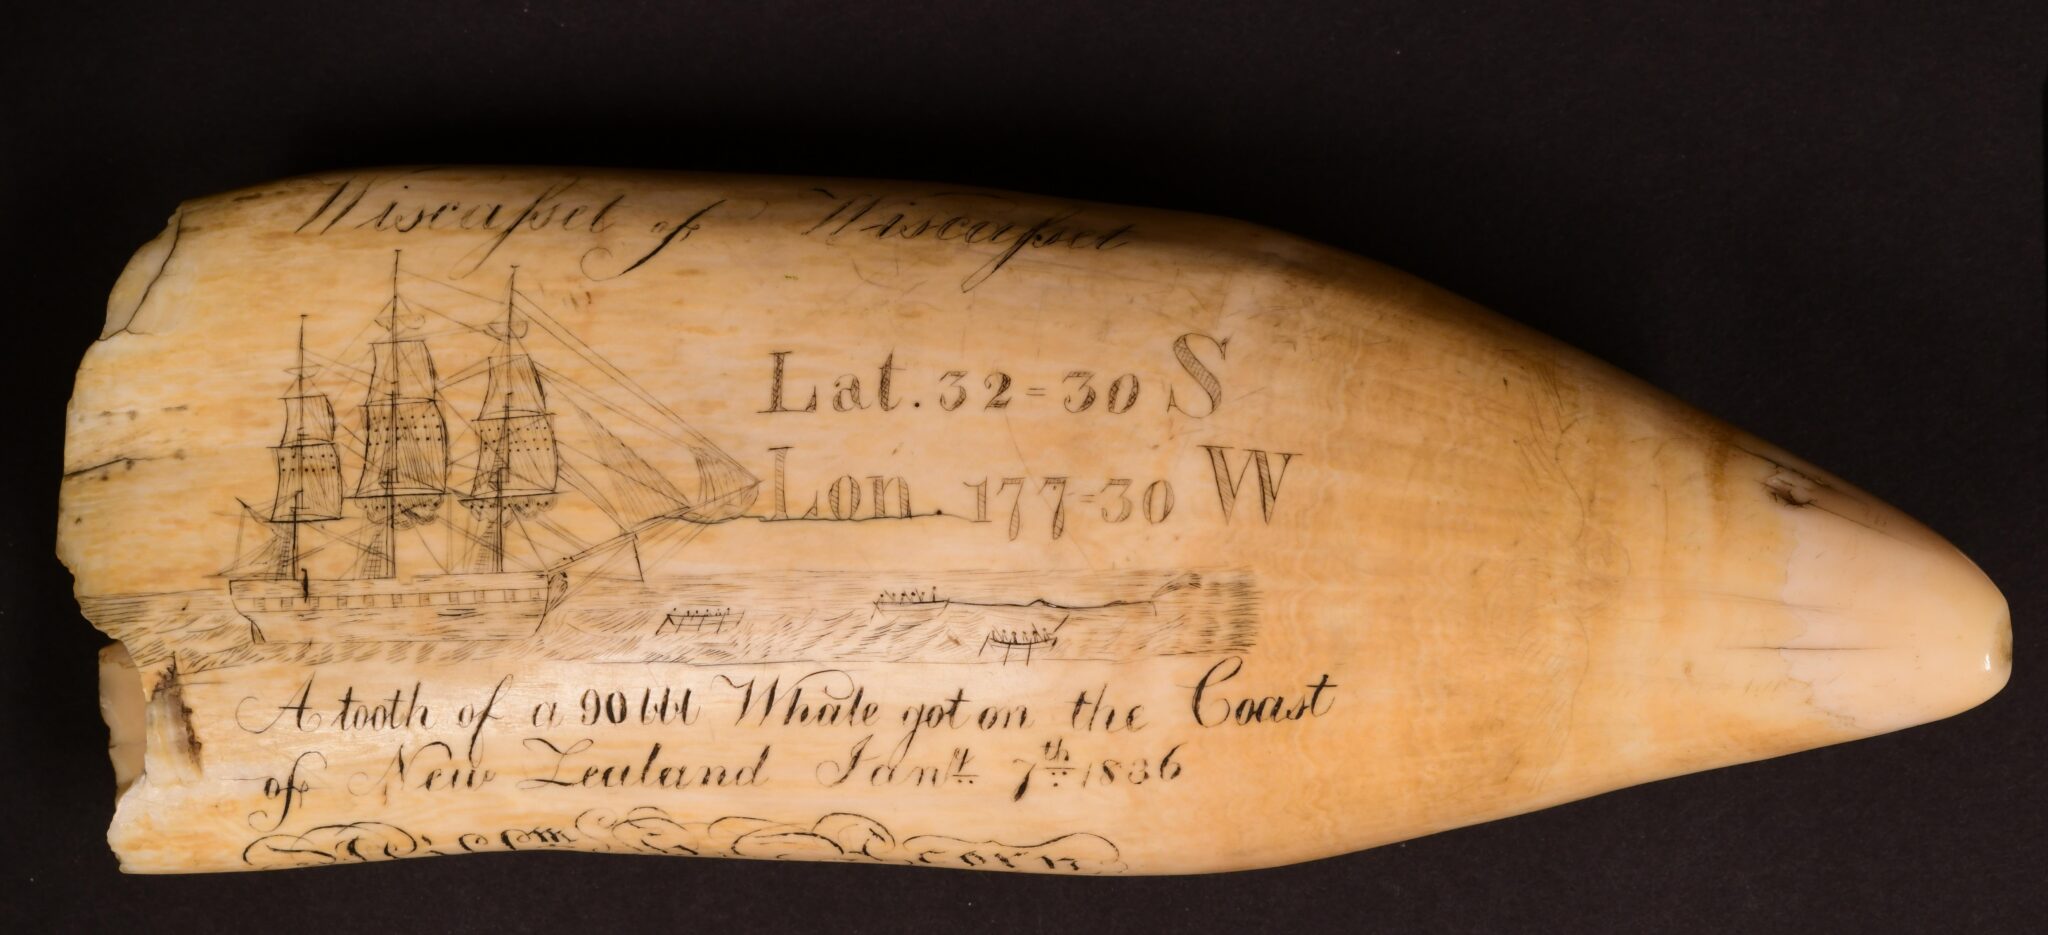 Wiscaſset of Wiscaſset
Lat. 32=30 S
Lon. 177=30 W
A tooth of a 90 bbl Whale got on the Coast
of New Zealand Jany. 7th 1836